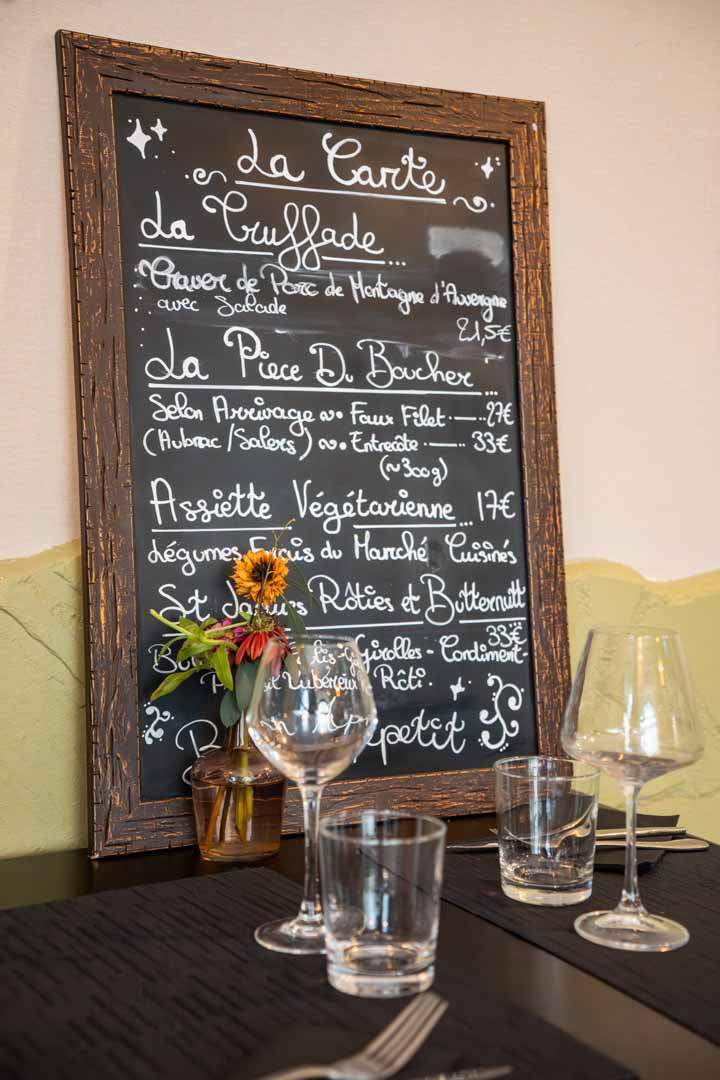 La Carte
La Truffade ...
Traver de Porc de Montagne d'Auvergne
avec Salade
21,5€
La Piece Du Boucher ...
Selon Arrivage ~• Faux Filet — 27€
(Aubrac/Salers) ~• Entrecôte — 33€
(~300g)
Assiette Végétarienne ... 17€
Légumes du Marché Cuisinés
St Jacques Rôties et Butternutt
33€
Girolles - Condiment -
Rôti.
Bon Appetit